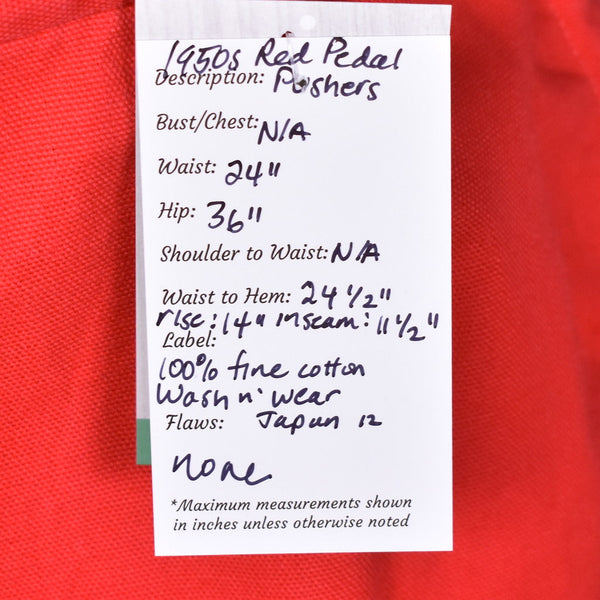 1950s Red Pedal
Description: Pushers
Bust/Chest: N/A
Waist: 24"
Hip: 36"
Shoulder to Waist: N/A
Waist to Hem: 24 1/2"
rise: 14" inseam: 11 1/2"
Label:
100% fine cotton
Wash n' wear
Flaws: Japan 12
none
*Maximum measurements shown
in inches unless otherwise noted